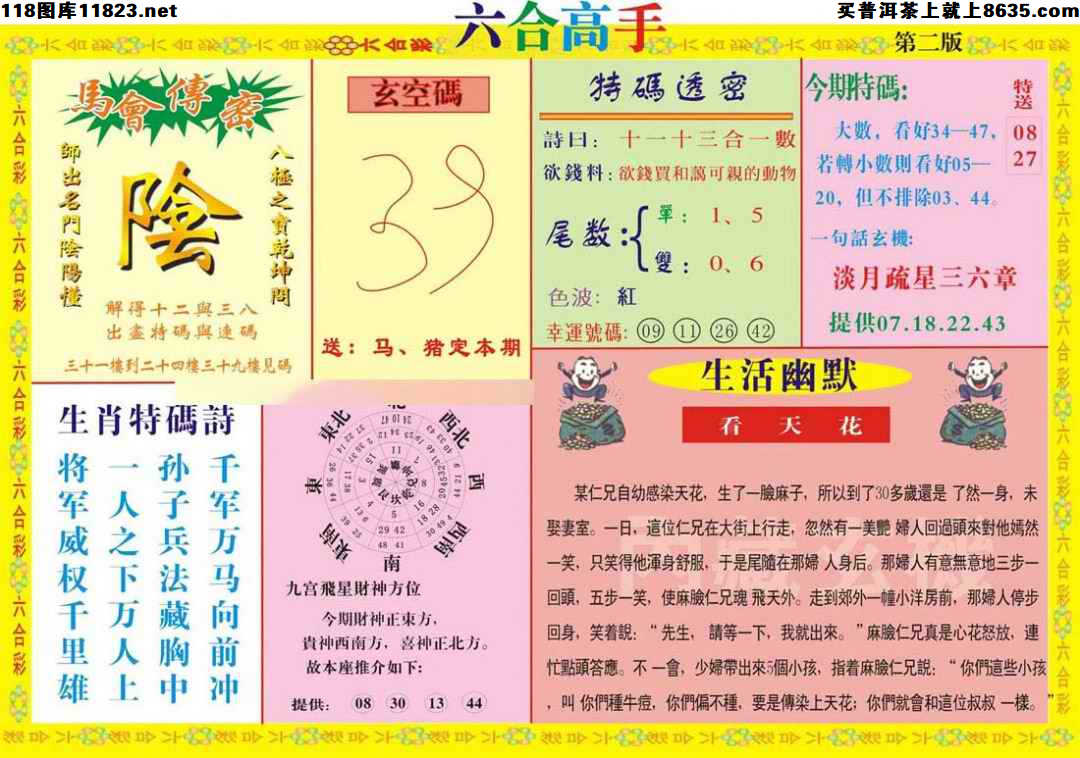 118图库11823.net
买普洱茶上就上8635.com
六合高手
第二版
馬會傳密
八極之寶乾坤問
陰
師出名門陰陽懂
解得十二與三八
出盡特碼與連碼
三十一樓到二十四樓三十九樓見碼
玄空碼
送：马、猪定本期
特碼透密
詩曰：十一十三合一數
欲錢料：欲錢買和藹可親的動物
尾数：
單：1、5
雙：0、6
色波：紅
幸運號碼：09 11 26 42
今期特碼:
特送
08
27
大數，看好34—47，
若轉小數則看好05—
20，但不排除03、44。
一句話玄機:
淡月疏星三六章
提供07.18.22.43
生肖特碼詩
千军万马向前冲
孙子兵法藏胸中
一人之下万人上
将军威权千里雄
東北
西北
東
西
東南
西南
南
九宫飛星財神方位
今期財神正東方，
貴神西南方，喜神正北方。
故本座推介如下:
提供: 08 30 13 44
生活幽默
看天花
某仁兄自幼感染天花，生了一臉麻子，所以到了30多歲還是 了然一身，未
娶妻室。一日，這位仁兄在大街上行走，忽然有一美艷 婦人回過頭來對他嫣然
一笑，只笑得他渾身舒服，于是尾隨在那婦 人身后。那婦人有意無意地三步一
回頭，五步一笑，使麻臉仁兄魂 飛天外。走到郊外一幢小洋房前，那婦人停步
回身，笑着說：“先生，請等一下，我就出來。”麻臉仁兄真是心花怒放，連
忙點頭答應。不 一會，少婦帶出來5個小孩，指着麻臉仁兄說：“你們這些小孩
，叫 你們種牛痘，你們偏不種，要是傳染上天花；你們就會和這位叔叔 一樣。”